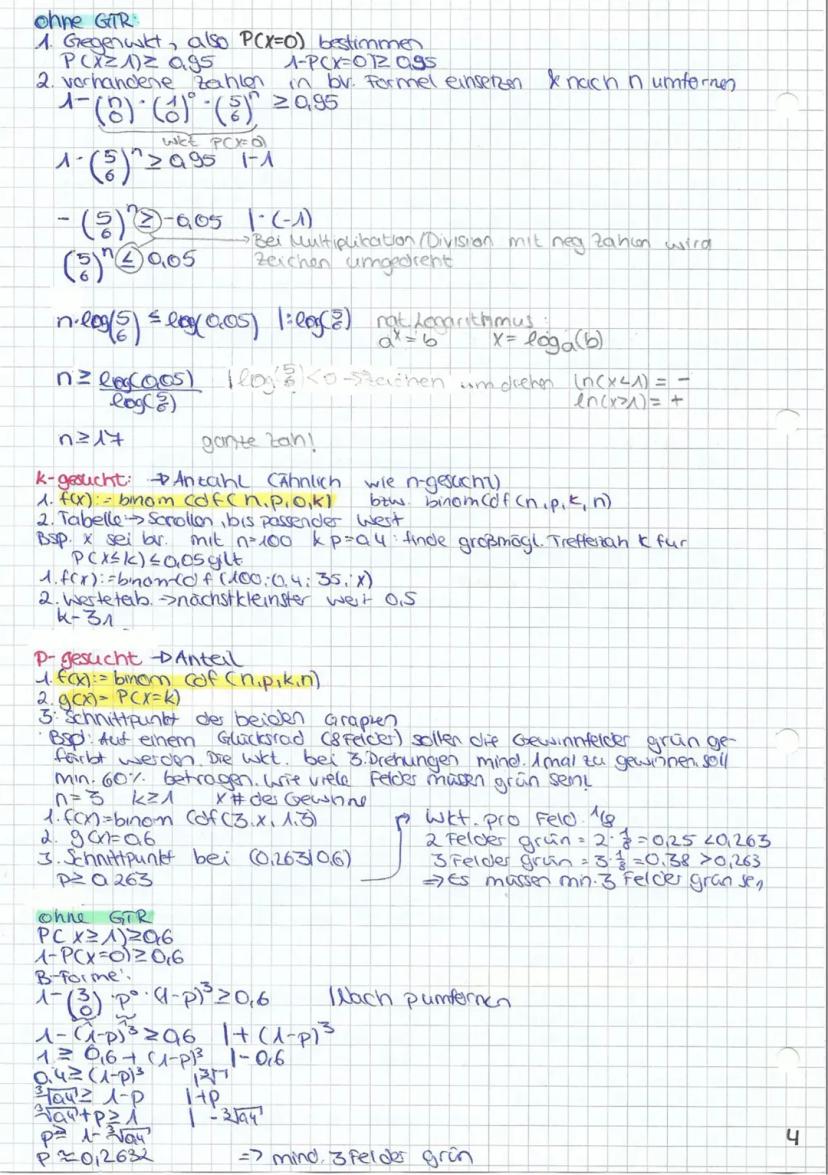 ohne GTR:
1. Gegenwkt, also P(X=0) bestimmen
P(X≥1)≥ 0,95 1-P(X=0)≥ 0,95
2. vorhandene Zahlen in bv. Formel einsetzen & nach n umformen
1-(n 0)·(1 6)⁰·(5/6)ⁿ ≥ 0,95
Wkt P(X=0)
1-(5/6)ⁿ ≥ 0,95 |-1
-(5/6)ⁿ ≥ -0,05 |·(-1)
→Bei Multiplikation/Division mit neg Zahlen wird
(5/6)ⁿ ≤ 0,05 Zeichen umgedreht
n·log(5/6) ≤ log(0,05) |:log(5/6) nat. Logarithmus:
aˣ=b x=logₐ(b)
n≥ log(0,05)/log(5/6) |log(5/6)<0→Zeichen umdrehen ln(x<1) = -
ln(x>1) = +
n≥17 ganze Zahl!
k-gesucht: → Anzahl (Ähnlich wie n-gesucht)
1. f(x):= binom cdf(n,p,0,k) bzw. binomcdf(n,p,k,n)
2. Tabelle → Scrollen, bis passender Wert
Bsp. X sei bv. mit n=100 & p=0,4: finde größmögl. Trefferzah k für
P(X≤k)≤0,05 gilt
1. f(x):=binomcdf(100;0,4;35;x)
2. Wertetab. →nächstkleinster Wert 0,5
k-31
p-gesucht → Anteil
1. f(x):= binom cdf(n,p,k,n)
2. g(x)= P(X=k)
3. Schnittpunkt der beiden Graphen
Bsp: Auf einem Glücksrad (8 Felder) sollen die Gewinnfelder grün ge-
färbt werden. Die Wkt. bei 3 Drehungen mind. 1 mal zu gewinnen soll
min. 60% betragen. Wie viele Felder müssen grün sein?
n=3 k≥1 X # der Gewinne
1. f(x)=binom cdf(3,x,1,3) Wkt. pro Feld. 1/8
2. g(x)=0,6 2 Felder grün = 2·1/8=0,25 <0,263
3. Schnittpunkt bei (0,263|0,6) 3 Felder grün = 3·1/8=0,38 >0,263
p≥0,263 ⇒ Es müssen min. 3 Felder grün sein
ohne GTR
P(X≥1)≥0,6
1-P(X=0)≥0,6
B-Formel:
1-(3 0)·p⁰·(1-p)³≥0,6 |Nach p umformen
1-(1-p)³≥0,6 |+(1-p)³
1≥ 0,6+(1-p)³ |-0,6
0,4≥(1-p)³ |³√
³√0,4≥ 1-p |+p
³√0,4+p≥1 |-³√0,4
p≥ 1-³√0,4
p≈0,2632 => mind. 3 Felder grün
4